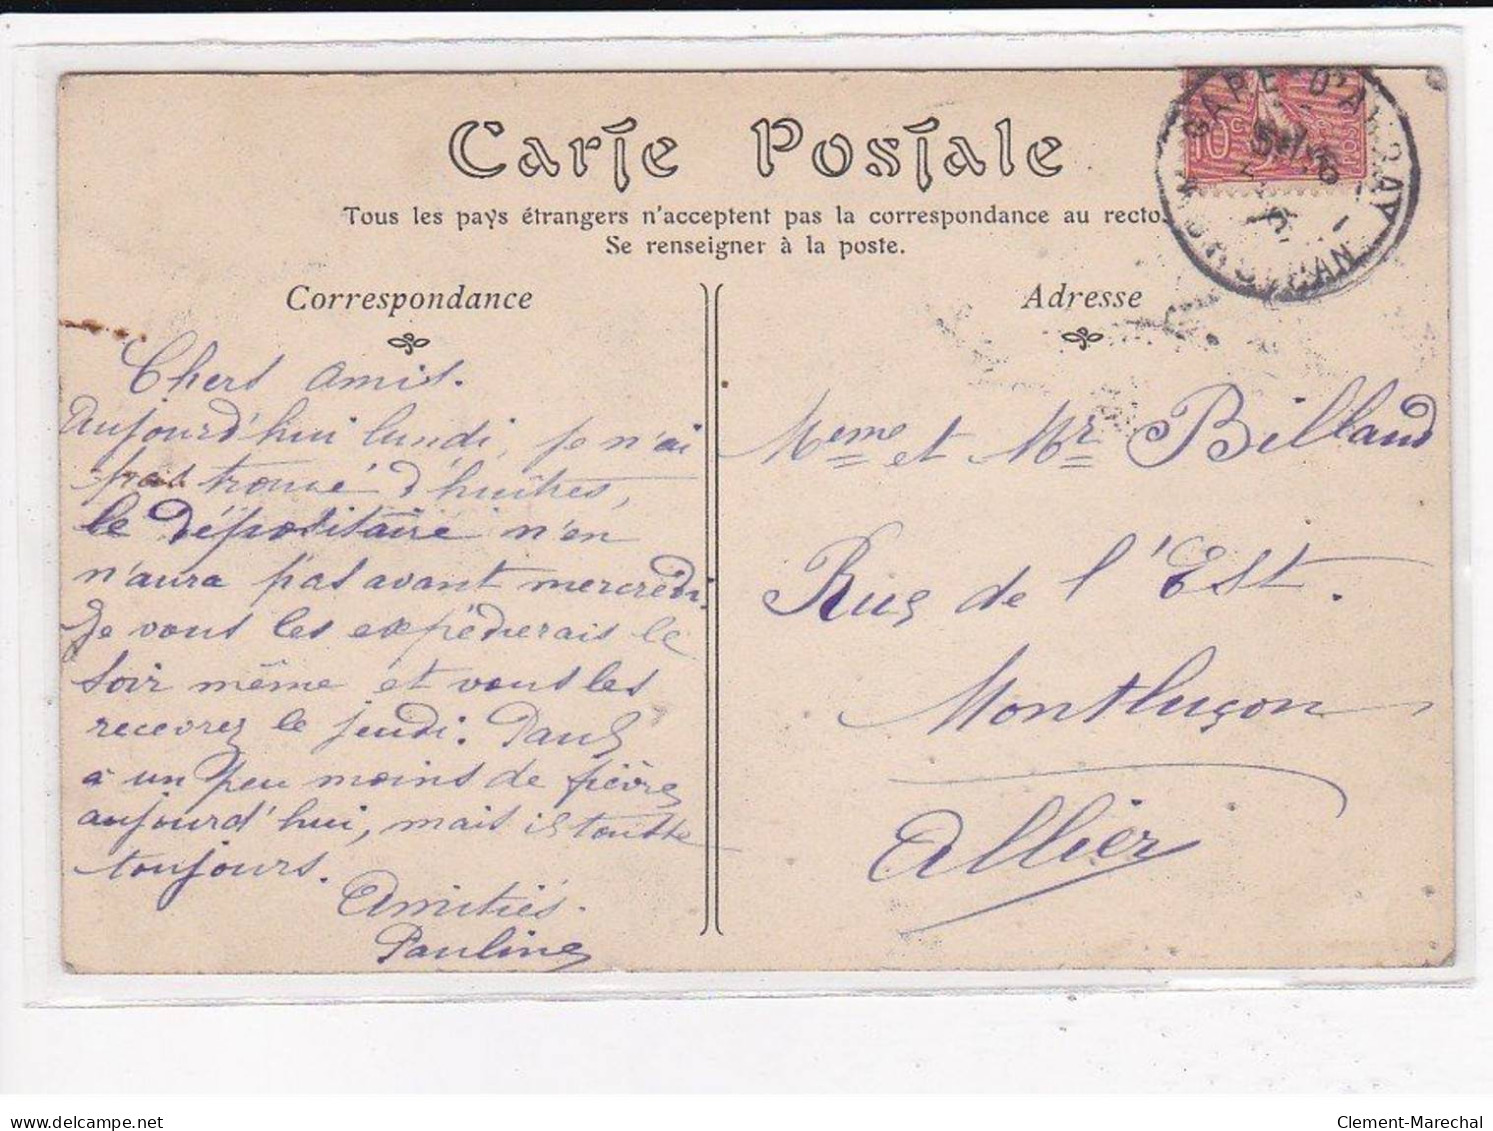 Carte Postale
Tous les pays étrangers n'acceptent pas la correspondance au recto.
Se renseigner à la poste.
Correspondance
Chers amis.
Aujourd'hui lundi, je n'ai
pas trouvé d'huîtres,
le dépositaire n'en
n'aura pas avant mercredi.
Je vous les expédierais le
soir même et vous les
recevrez le jeudi. Paul
a un peu moins de fièvre
aujourd'hui, mais il tousse
toujours.
Amitiés.
Pauline
Adresse
Mme et Mr Billaud
Rue de l'Est.
Montluçon
Allier
GARE D'AURAY
MORBIHAN
10c
POSTES
delcampe.net
Clement-Marechal